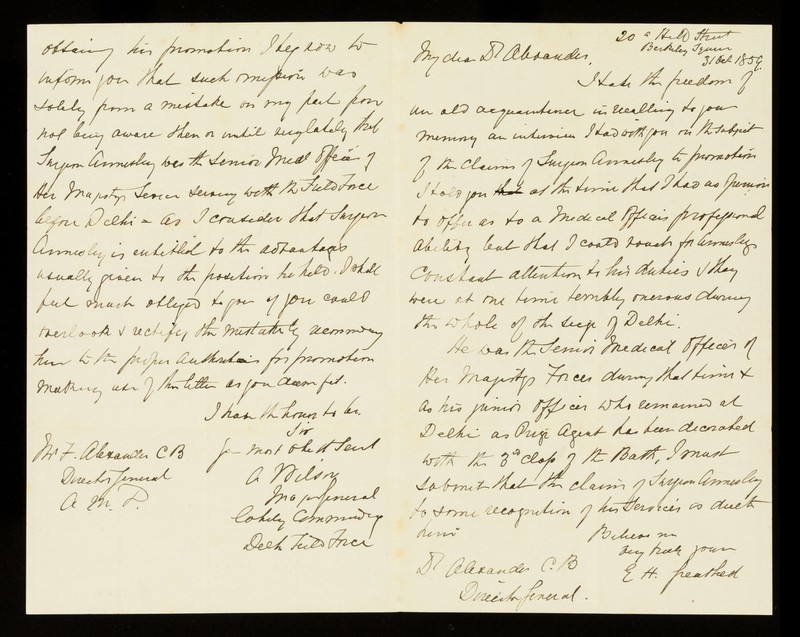 obtaining his promotion I beg now to
inform you that such omission was
solely from a mistake on my part from
not being aware then or until very lately that
Surgeon Annesley was the Senior Med Officer of
Her Majestys Service serving with the Field Force
before Delhi - as I consider that Surgeon
Annesley is entitled to the advantages
usually given to the position he held. I shall
feel much obliged to you if you could
overlook & rectify the mistake by recommending
him to the proper authorities for promotion
making use of this letter as you deem fit.
I have the honor to be
Sir
Yr most obedt Servt
A Wilson
Major General
lately Commanding
Delhi Field Force
Mr F. Alexander C B
Director General
A M D.
20 a Hill Street
Berkeley Square
31 Oct 1859.
My dear Dr Alexander,
I take the freedom of
an old acquaintance in recalling to your
memory an interview I had with you on the subject
of the Claims of Surgeon Annesley to promotion
I told you that at the time that I had no opinion
to offer as to a Medical Officers professional
ability but that I could vouch for Annesleys
Constant attention to his duties & they
were at one time terribly onerous during
the whole of the siege of Delhi.
He was the Senior Medical Officer of
Her Majestys Forces during that time &
as his junior officer who remained at
Delhi as Prize Agent has been decorated
with the 3rd Class of the Bath, I must
submit that the claims of Surgeon Annesley
to some recognition of his Services is due to
him
Believe me
very truly yours
E H. Greathed
Dr Alexander C. B
Director General.